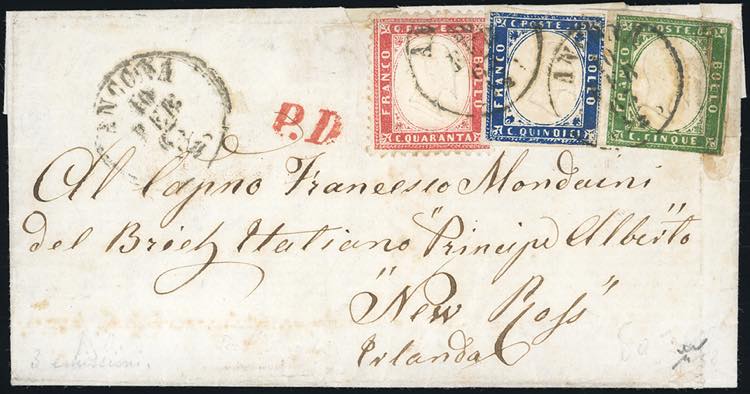 ANCONA
10
FEB
63
P.D
C. POSTE 40
FRANCO
BOLLO
C. QUARANTA
C. POSTE 15
FRANCO
BOLLO
C. QUINDICI
C. POSTE
FRANCO
BOLLO
C. CINQUE
Al Capno Francesco Mondaini
del Brich Italiano "Principe Alberto"
"New Ross"
Irlanda
3 emissioni.